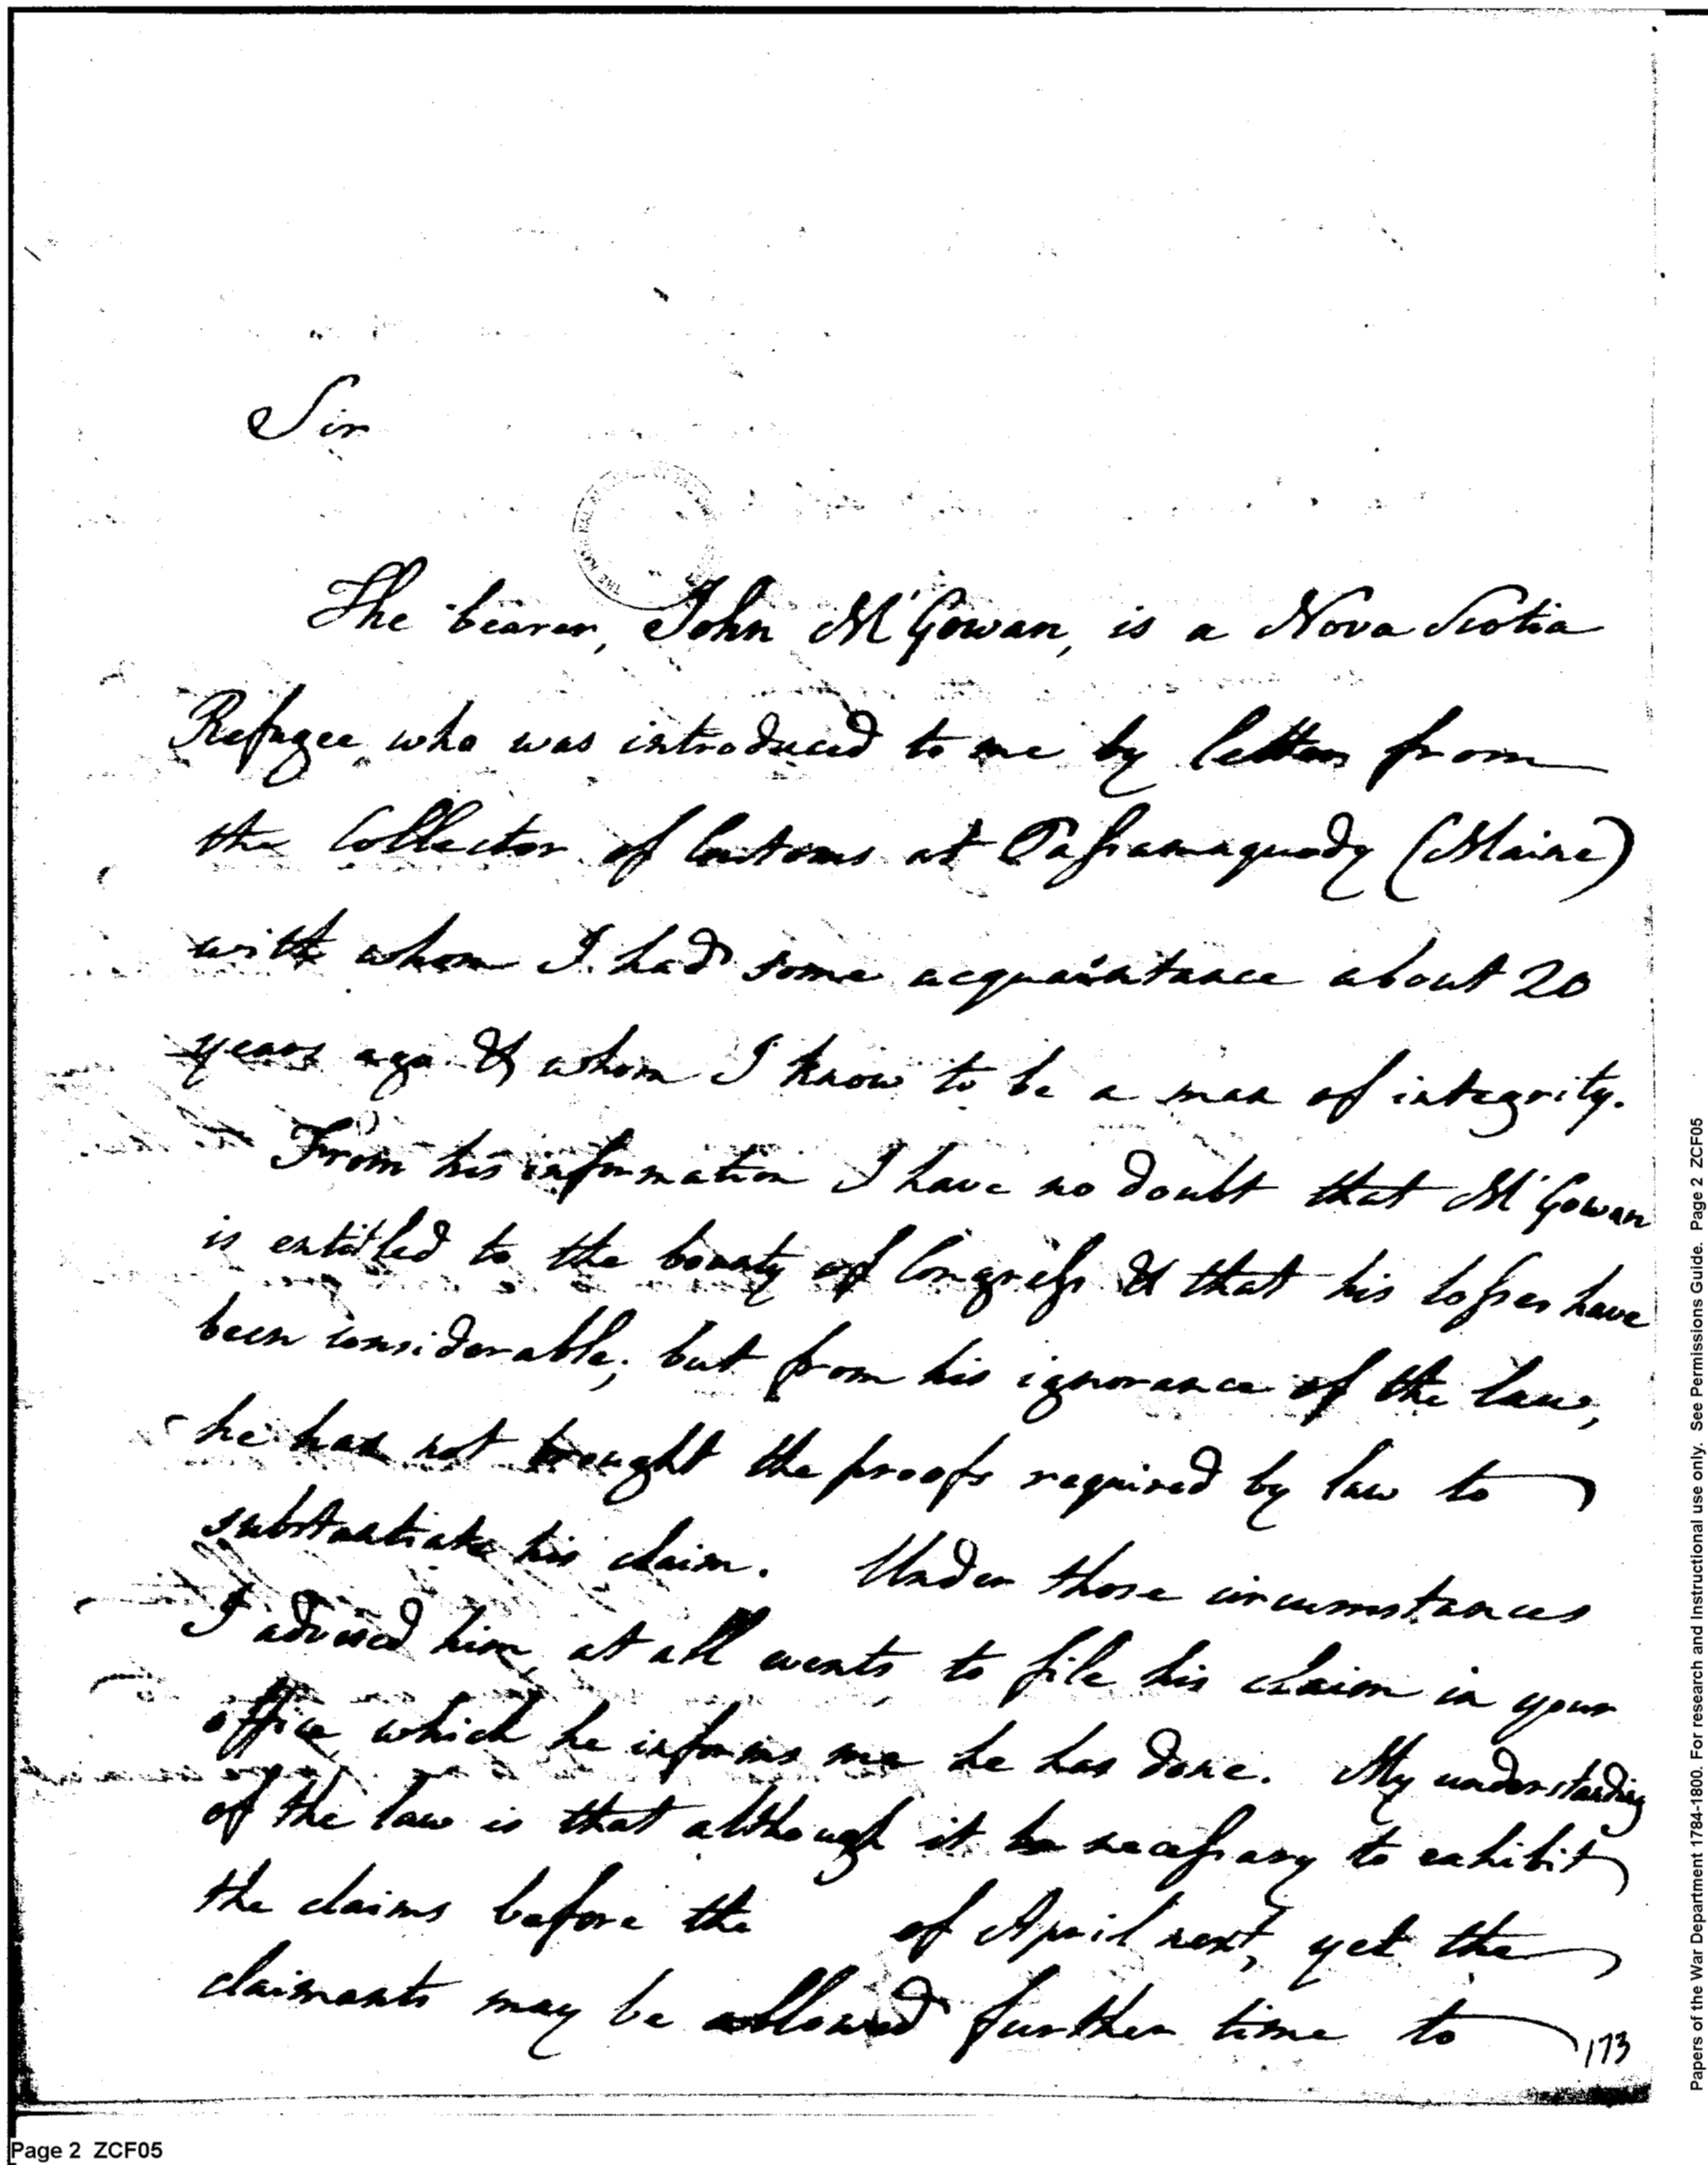 Sir
The bearer, John McGowan, is a Nova Scotia
Refugee who was introduced to me by letter from
the Collector of Customs at Passamaquody (Maine)
with whom I had some acquaintance about 20
years ago & whom I know to be a man of integrity.
From his information I have no doubt that McGowan
is entitled to the bounty of Congress & that his losses have
been considerable; but from his ignorance of the law,
he has not brought the proofs required by law to
substantiate his claim. Under those circumstances
I advised him, at all events, to file his claim in your
office which he informs me he has done. My understanding
of the law is that although it be necessary to exhibit
the claims before the of April next, yet the
claimants may be allowed further time to
173
Page 2 ZCF05
Papers of the War Department 1784-1800. For research and Instructional use only. See Permissions Guide. Page 2 ZCF05